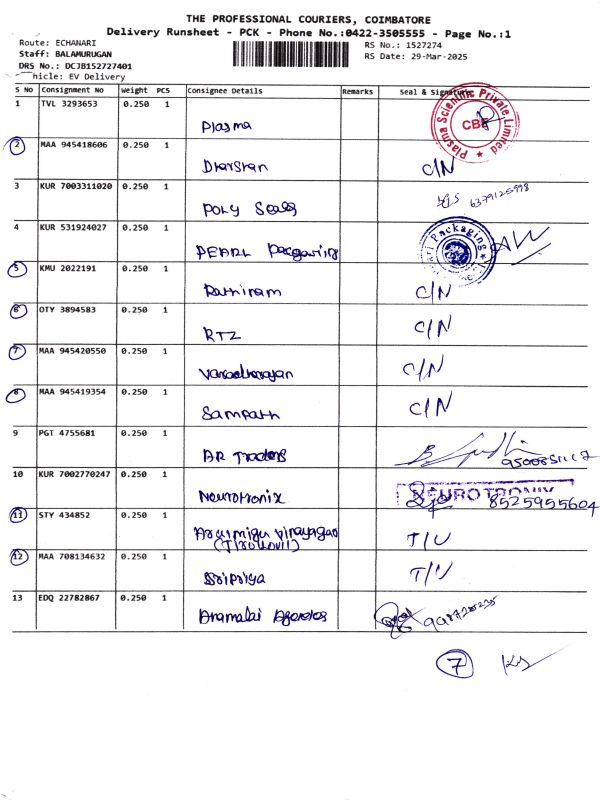 THE PROFESSIONAL COURIERS, COIMBATORE
Delivery Runsheet - PCK - Phone No.:0422-3505555 - Page No.:1
Route: ECHANARI
RS No.: 1527274
Staff: BALAMURUGAN
RS Date: 29-Mar-2025
DRS No.: DCJB152727401
hicle: EV Delivery
S No Consignment No Weight PCS Consignee Details Remarks Seal & Signature
1 TVL 3293653 0.250 1 Plasma Plasma Scientific Private Limited CBE
2 MAA 945418606 0.250 1 Dharshan C/N
3 KUR 7003311020 0.250 1 POLY Seals 6379125998
4 KUR 531924027 0.250 1 PEARL Packaging
5 KMU 2022191 0.250 1 Rathinam C/N
6 OTY 3894583 0.250 1 RTZ C/N
7 MAA 945420550 0.250 1 C/N
8 MAA 945419354 0.250 1 Sampath C/N
9 PGT 4755681 0.250 1 AR Traders
10 KUR 7002770247 0.250 1 Neurotronix NEUROTRONIX 8525955604
11 STY 434852 0.250 1 Arulmigu Vinayagar T/U
12 MAA 708134632 0.250 1 Sripriya T/U
13 EDQ 22782867 0.250 1
7